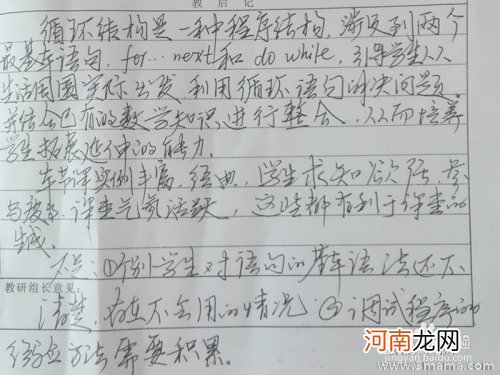 教后记
循环结构是一种程序结构，涉及到两个
最基本语句，for…next和do while，引导学生从
生活周围实际出发 利用循环语句解决问题。
并结合已有的数学知识进行整合，从而培养
学生拓展延伸的能力。
本节课实例丰富，经典，学生求知欲强，参
与度高，课堂气氛活跃，这些都有利于课堂的
生成。
不足：①个别学生对语句的基本语法还不
教研组长意见：
清楚 存在不会用的情况 ②调试程序的
经验方法需要积累。
河南龙网
jingyan.baidu.com
www.3mama.com